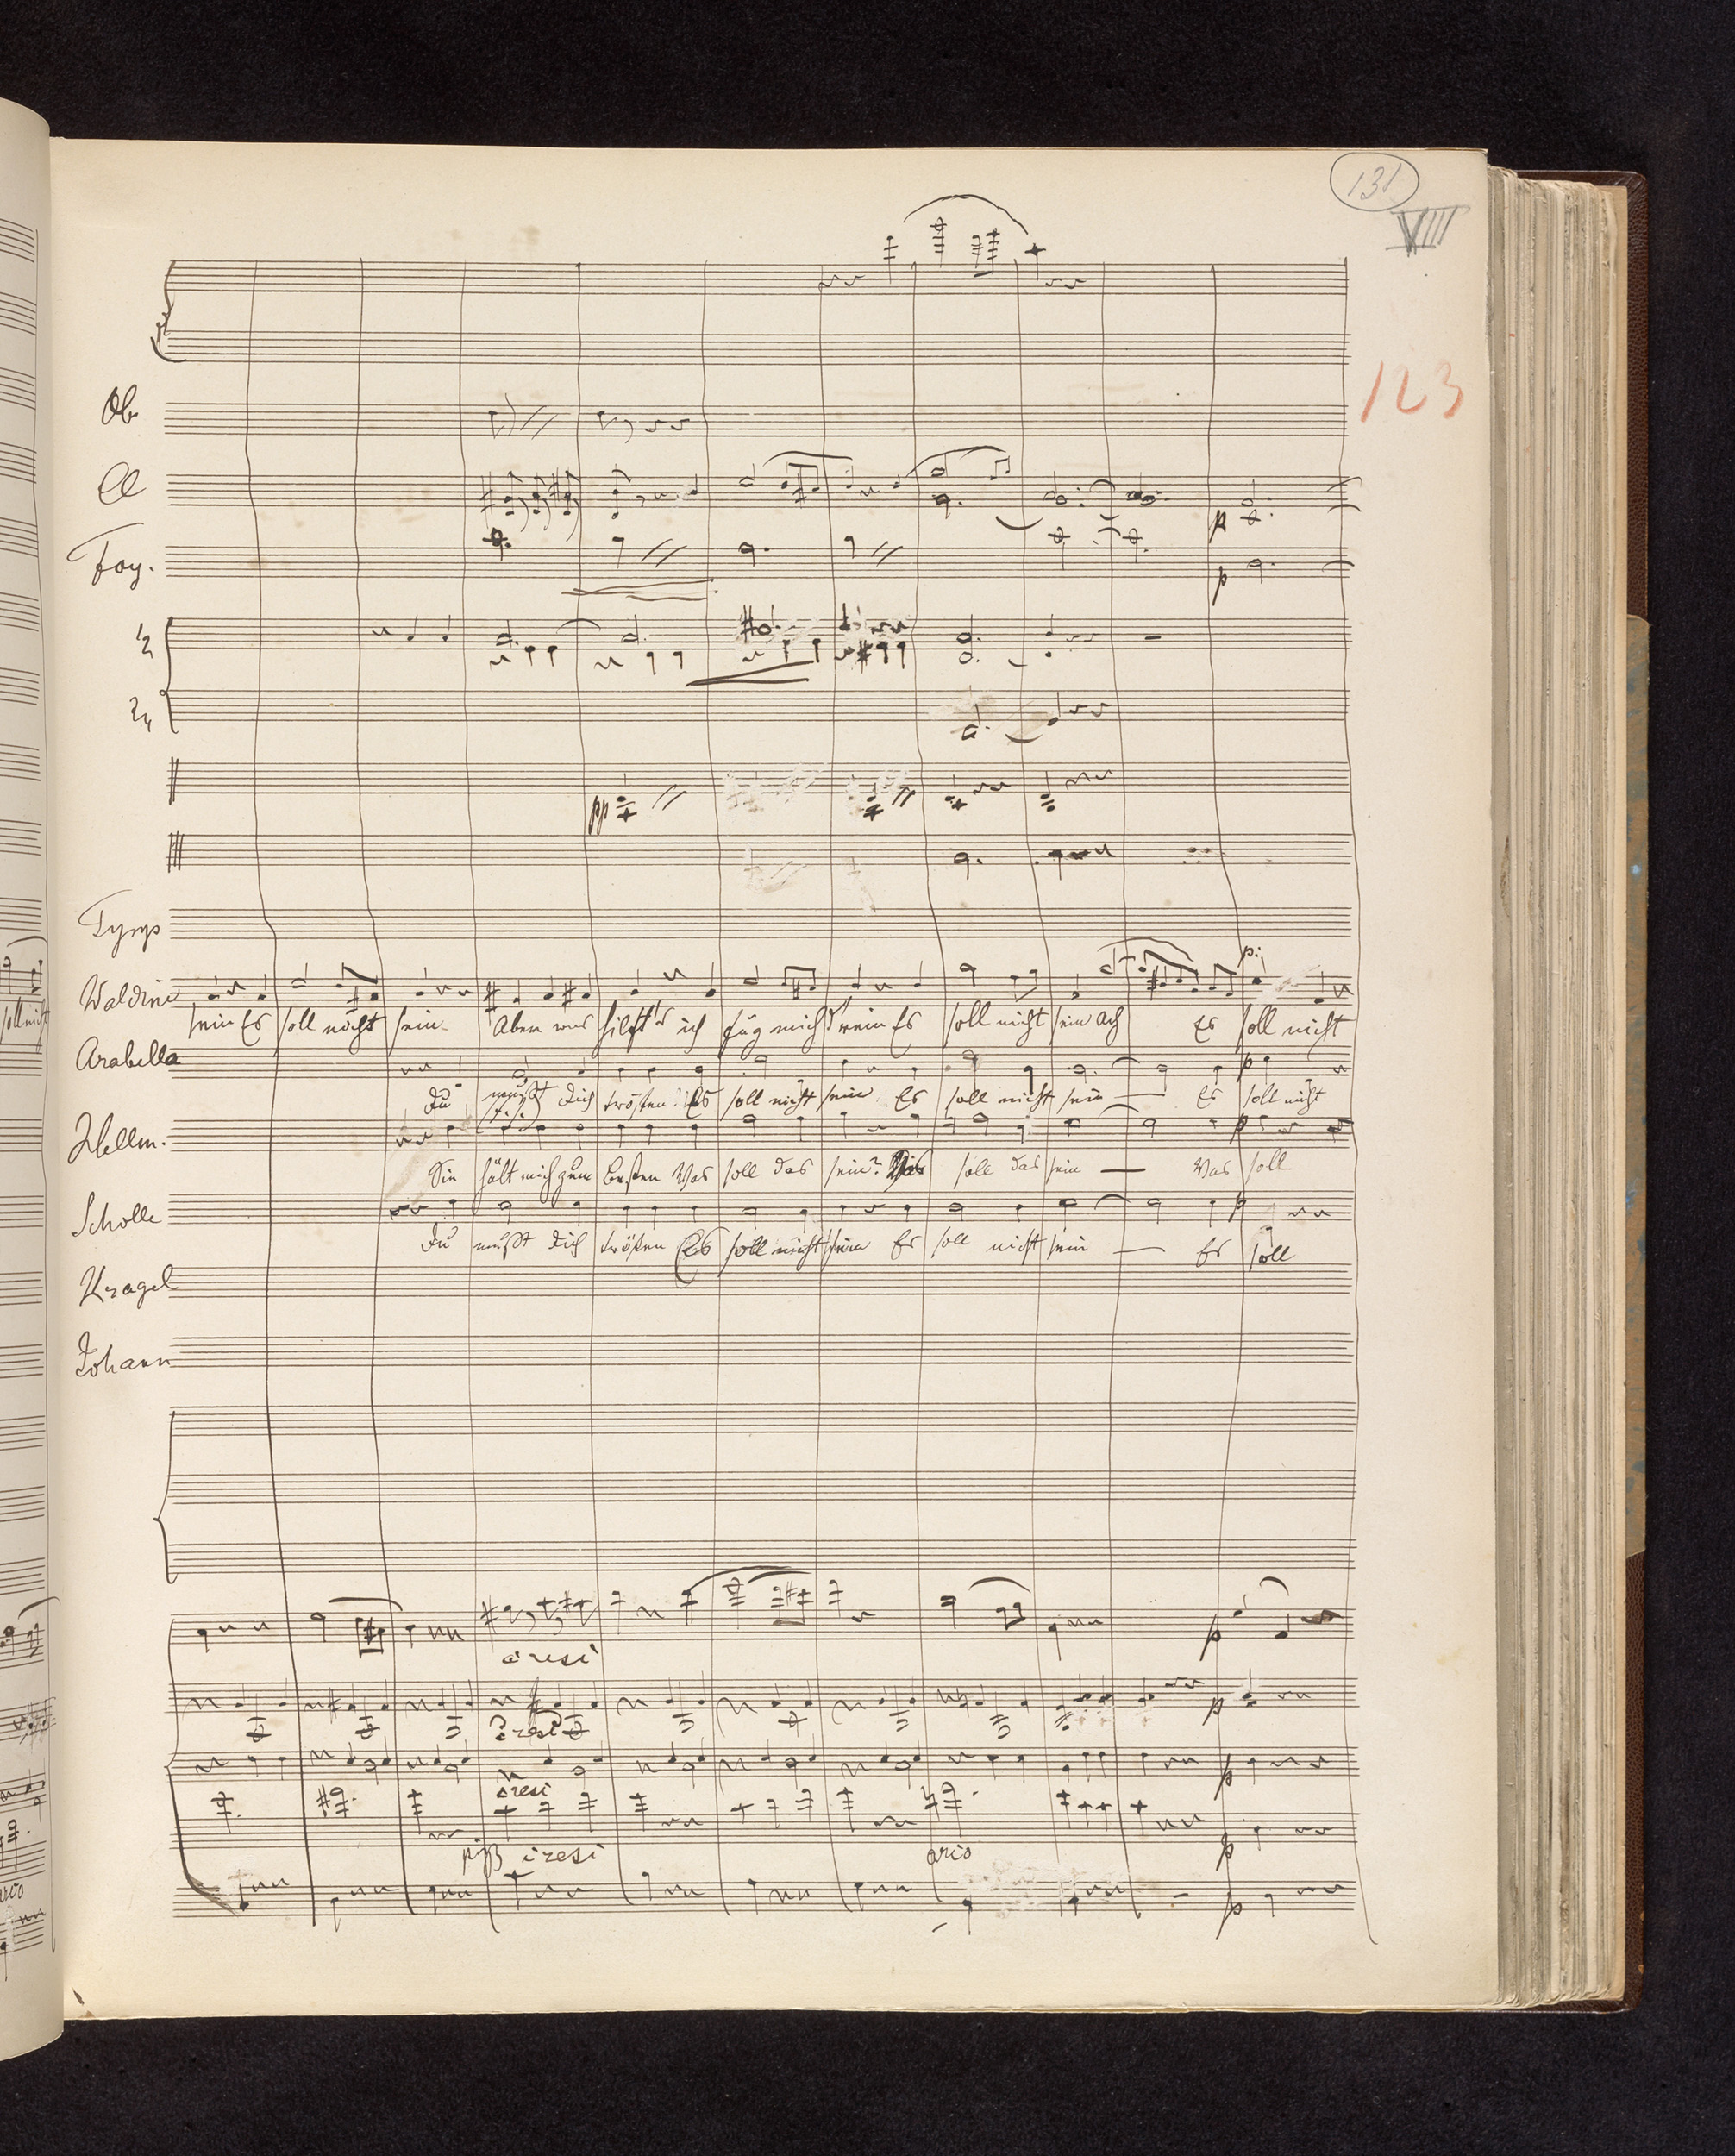 131
VIII
123
Ob
Cl
Fag.
1/2
3/4
pp
p
p
Tymp
Waldine
sein Es soll nicht sein Aber was hilft's ich füg mich drein Es soll nicht sein Ach Es soll nicht
Arabella
p
Du mußt dich trösten Es soll nicht sein Es soll nicht sein — Es soll nicht
Hellm.
p
Sie hält mich zum besten Was soll das sein? Was soll das sein — Was soll
Scholle
p
Du mußt dich trösten Es soll nicht sein Es soll nicht sein — Es soll
Kragel
Johann
cresc
p
cresc
p
cresc
p
pizz cresc
arco
p
p